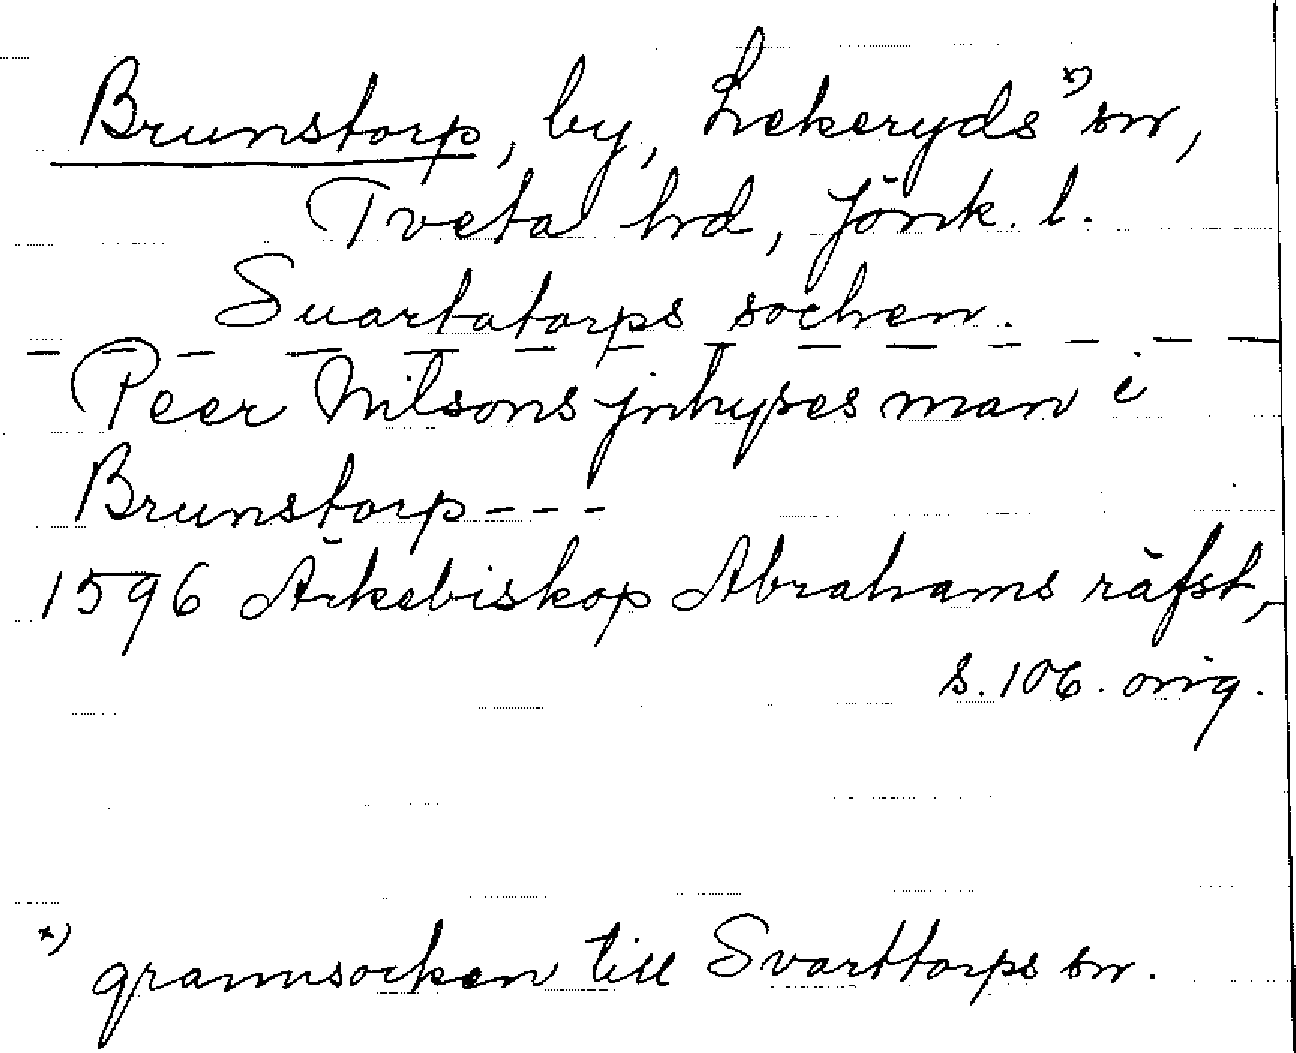 Brunstorp, by, Lekeryds *) sn,
Tveta hrd, Jönk. l.
Suartatorps sochen.
Peer Nilsons jnhyses man i
Brunstorp - - -
1596 Ärkebiskop Abrahams räfst,
s. 106. orig.
*) grannsocken till Svarttorps sn.